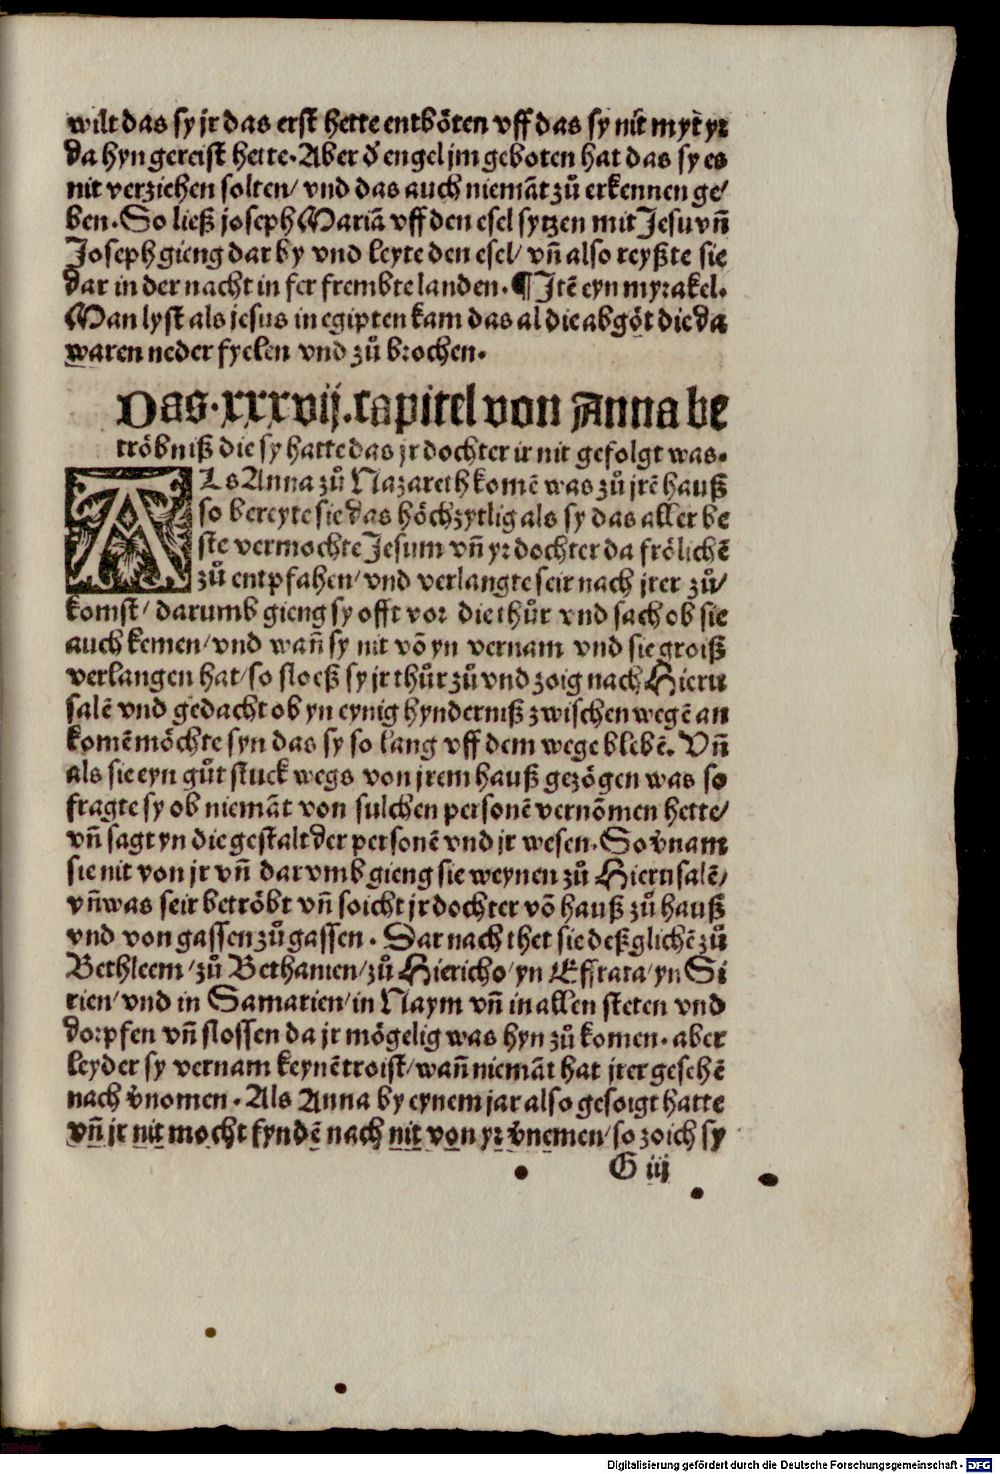 wilt das sy jr das erst hette entböten vff das sy nit myt yr
da hyn gereist hette. Aber d̾ engel jm geboten hat das sy es
nit verziehen solten/ vnd das auch niemāt zů erkennen ge/
ben. So ließ joseph Mariā vff den esel sytzen mit Jesu vn̄
Joseph gieng dar by vnd leyte den esel/ vn̄ also reyßte sie
dar in der nacht in fer frembte landen. ¶ Jtē eyn myrakel.
Man lyst als jesus in egipten kam das al die abgöt die da
waren neder fyelen vnd zů brochen.
Das .xxxvij. capitel von Anna be
tröbniß die sy hatte das jr dochter ir nit gefolgt was.
ALs Anna zů Nazareth komē was zů jrē hauß
so bereyte sie das höchzytlig als sy das aller be
ste vermochte Jesum vn̄ yr dochter da frölichē
zů entpfahen/ vnd verlangte seir nach jrer zů/
komst/ darumb gieng sy offt vor die thůr vnd sach ob sie
auch kemen/ vnd wan̄ sy nit vō yn vernam vnd sie groiß
verlangen hat/ so sloeß sy jr thůr zů vnd zoig nach Hieru
salē vnd gedacht ob yn eynig hynderniß zwischen wegē an
komē möchte syn das sy so lang vff dem wege blebē. Vn̄
als sie eyn gůt stuck wegs von jrem hauß gezögen was so
fragte sy ob niemāt von sulchen personē vernōmen hette/
vn̄ sagt yn die gestalt der personē vnd jr wesen. So v̾nam
sie nit von jr vn̄ dar vmb gieng sie weynen zů Hierusalē/
vn̄ was seir betröbt vn̄ soicht jr dochter vō hauß zů hauß
vnd von gassen zů gassen. Dar nach thet sie deßglichē zů
Bethleem/ zů Bethanien/ zů Hiericho/ yn Effrata/ yn Si
rien/ vnd in Samarien/ in Naym vn̄ in allen steten vnd
dorpfen vn̄ slossen da jr mögelig was hyn zů komen. aber
leyder sy vernam keynē troist/ wan̄ niemāt hat jrer gesehē
nach v̾nomen. Als Anna by eynem jar also gesoigt hatte
vn̄ jr nit mocht fyndē nach nit von yr v̾nemen/ so zoich sy
G iij
Digitalisierung gefördert durch die Deutsche Forschungsgemeinschaft - DFG